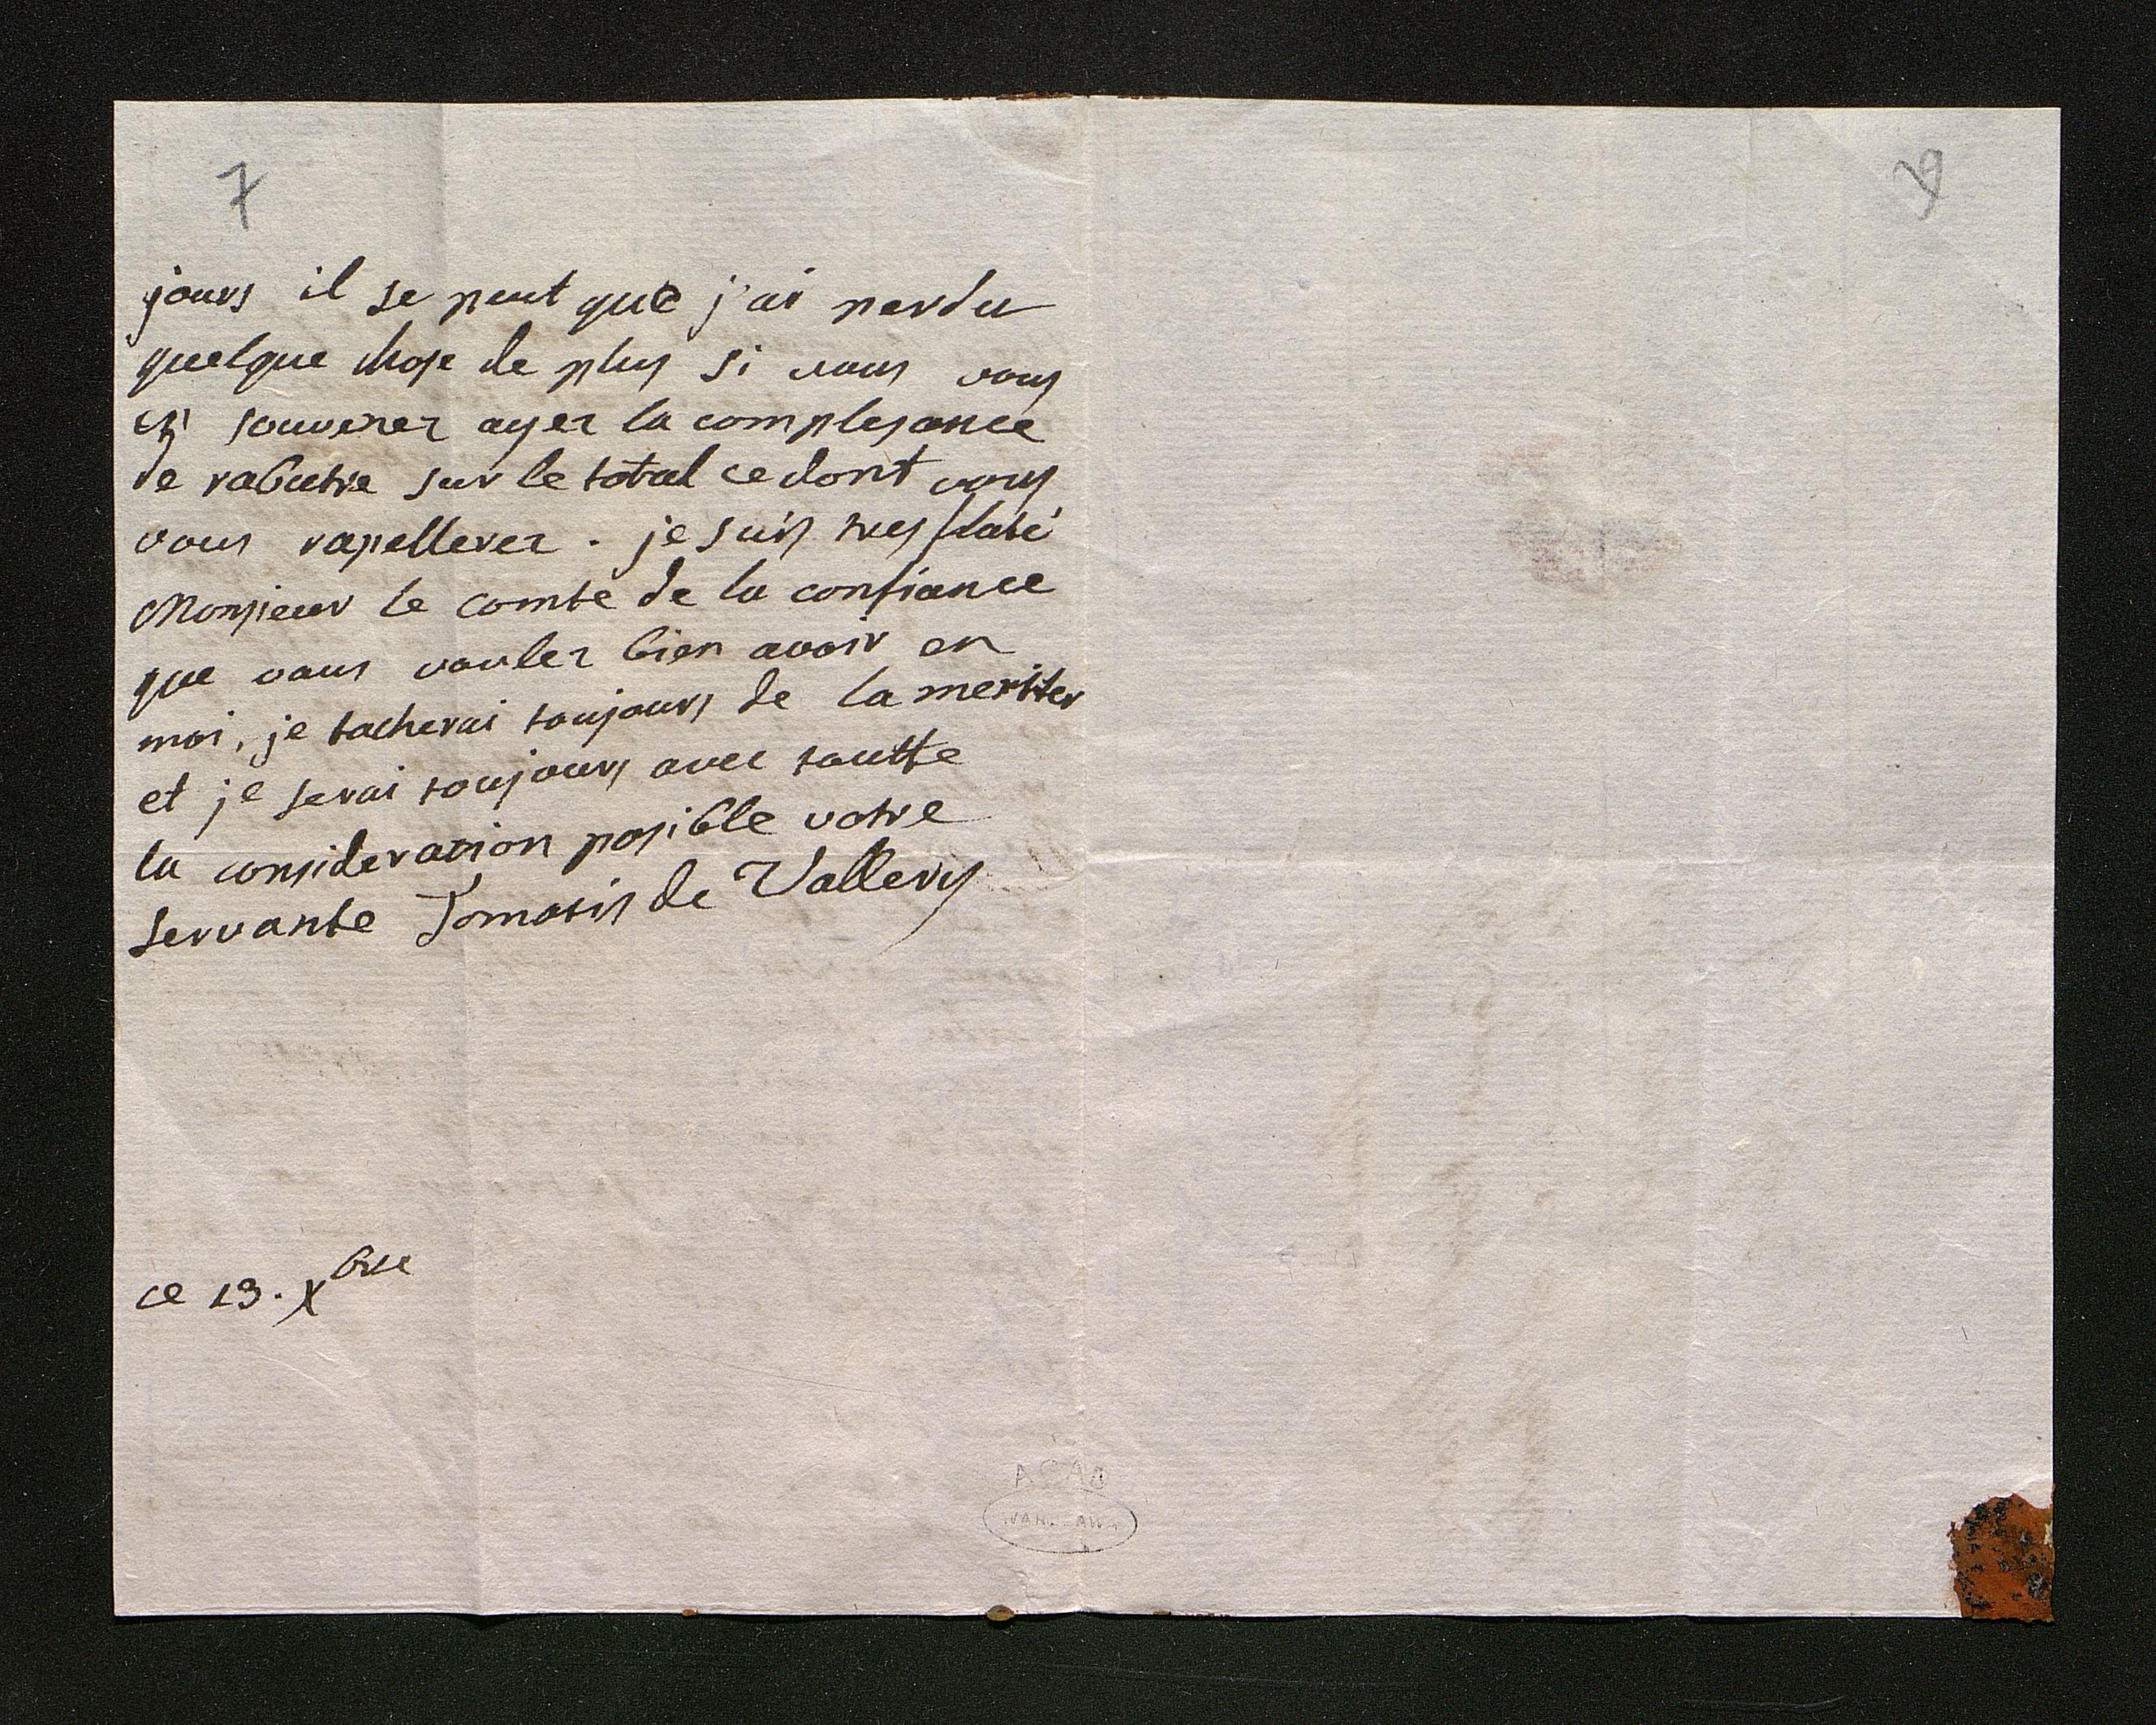 7
jours il se peut que j'ai perdu
quelque chose de plus si vous vous
en souvenez ayez la complesance
de rabatre sur le total ce dont vous
vous rapellerez . je suis tres flaté
Monsieur le comte de la confiance
que vous voulez bien avoir en
moi, je tacherai toujours de la meriter
et je serai toujours avec toutte
la consideration posible votre
servante Tomatis de Vallery
ce 13. Xbre